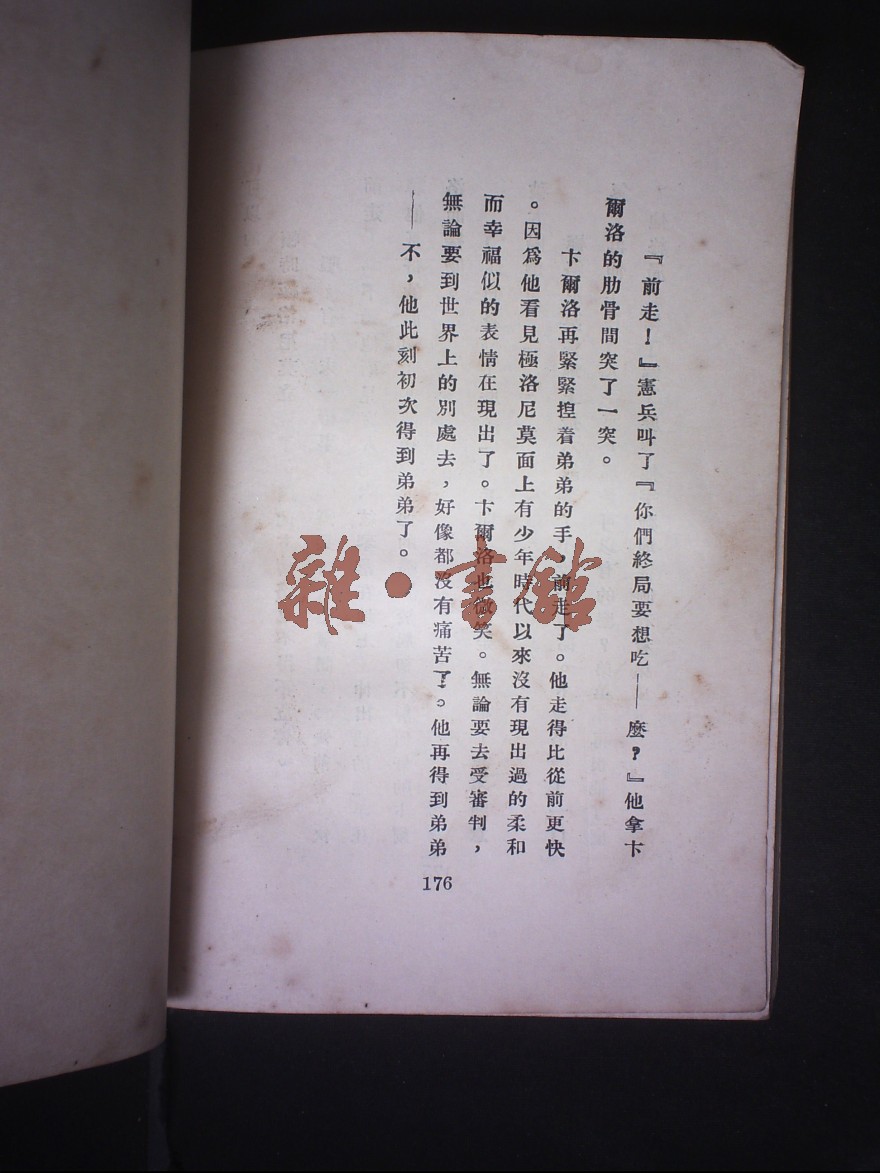 『前走！』憲兵叫了『你們終局要想吃——麼？』他拿卞
爾洛的肋骨間突了一突。
卞爾洛再緊緊揑着弟弟的手，前走了。他走得比從前更快
。因爲他看見極洛尼莫面上有少年時代以來沒有現出過的柔和
而幸福似的表情在現出了。卞爾洛也微笑。無論要去受審判，
無論要到世界上的別處去，好像都沒有痛苦了。他再得到弟弟
——不，他此刻初次得到弟弟了。
176
雜·書館